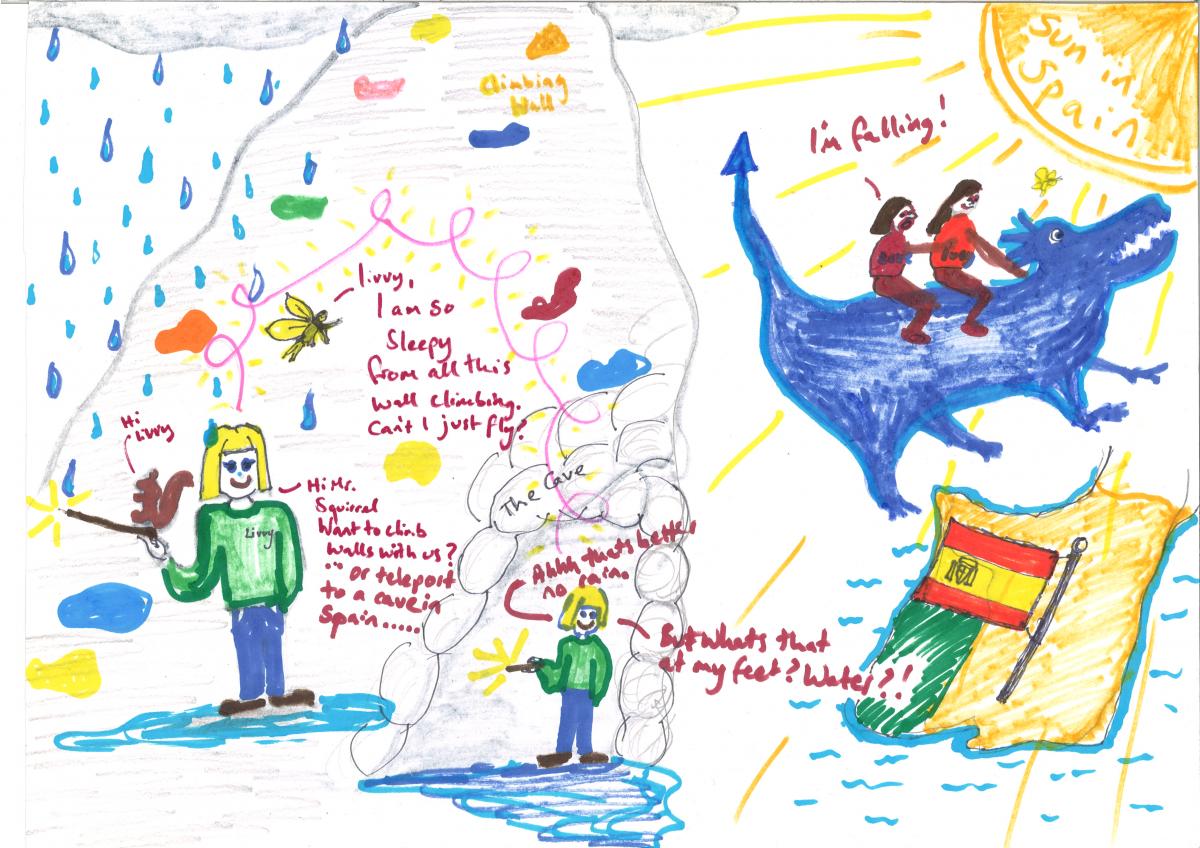 Climbing
Wall
Sun in
Spain
I'm falling!
livvy,
I am so
Sleepy
from all this
wall climbing.
Can't I just fly?
Hi
Livvy
Livvy
Hi Mr.
Squirrel
Want to climb
walls with us?
... or teleport
to a cave in
Spain......
The Cave
Ahhh thats better
no rain.
But whats that
at my feet? Water?!